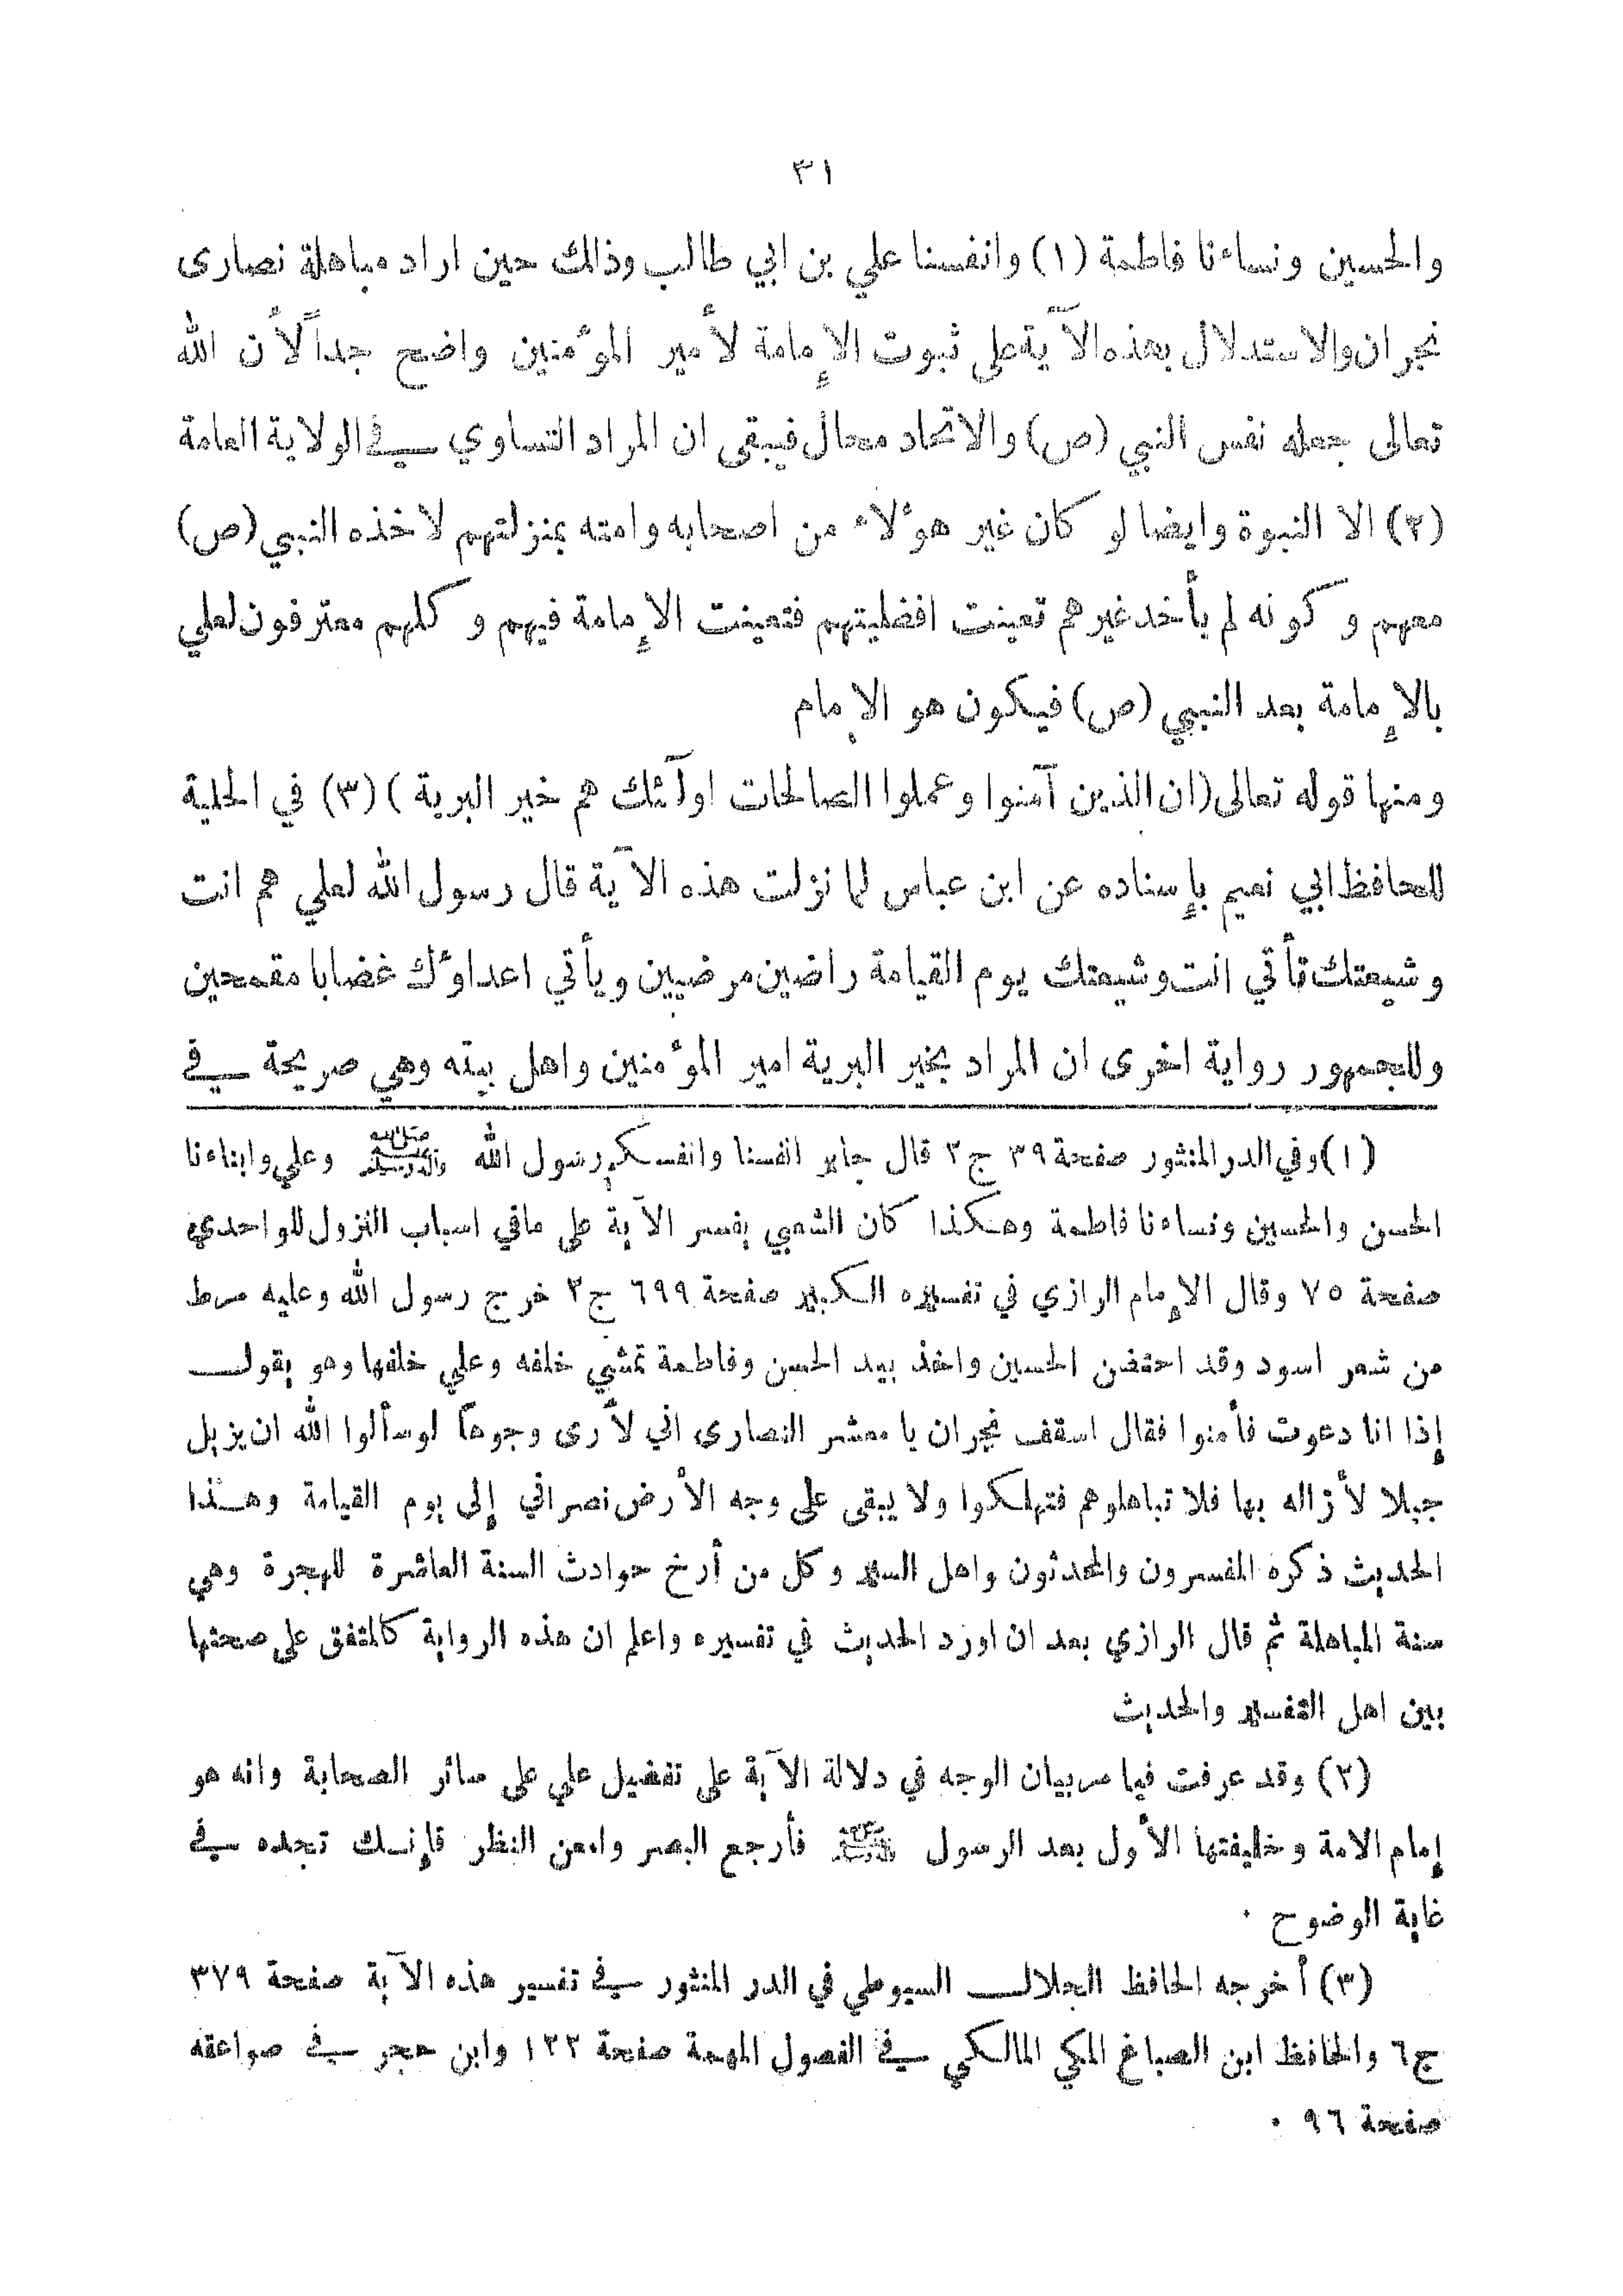 ٣١
والحسين ونساءنا فاطمة (١) وانفسنا علي بن ابي طالب وذالك حين اراد مباهلة نصارى
نجران والاستدلال بهذه الآية على ثبوت الإمامة لأمير المؤمنين واضح جداً لأن الله
تعالى جعله نفس النبي (ص) والاتحاد محال فيبقى ان المراد التساوي في الولاية العامة
(٢) الا النبوة وايضا لو كان غير هؤلاء من اصحابه وامته بمنزلتهم لاخذه النبي (ص)
معهم وكونه لم يأخد غيرهم تعينت افضليتهم فتعينت الإمامة فيهم وكلهم معترفون لعلي
بالإمامة بعد النبي (ص) فيكون هو الإمام
ومنها قوله تعالى (ان الذين آمنوا وعملوا الصالحات اولآئك هم خير البرية) (٣) في الحلية
للحافظ ابي نعيم بإسناده عن ابن عباس لما نزلت هذه الآية قال رسول الله لعلي هم انت
وشيعتك تأتي انت وشيعتك يوم القيامة راضين مرضيين ويأتي اعداؤك غضابا مقمحين
وللجمهور رواية اخرى ان المراد بخير البرية امير المؤمنين واهل بيته وهي صريحة في
(١) وفي الدر المنثور صفحة ٣٩ ج ٢ قال جابر انفسنا وانفسكم رسول الله ﷺ وعلي وابناءنا
الحسن والحسين ونساءنا فاطمة وهكذا كان الشعبي يفسر الآية على مافي اسباب النزول للواحدي
صفحة ٧٥ وقال الإمام الرازي في تفسيره الكبير صفحة ٦٩٩ ج ٢ خرج رسول الله وعليه مرط
من شعر اسود وقد احتضن الحسين واخذ بيد الحسن وفاطمة تمشي خلفه وعلي خلفها وهو يقول
إذا انا دعوت فأمنوا فقال اسقف نجران يا معشر النصارى اني لأرى وجوهاً لوسألوا الله ان يزيل
جبلا لأزاله بها فلا تباهلوهم فتهلكوا ولا يبقى على وجه الأرض نصراني إلى يوم القيامة وهذا
الحديث ذكره المفسرون والمحدثون واهل السير وكل من أرخ حوادث السنة العاشرة للهجرة وهي
سنة المباهلة ثم قال الرازي بعد ان اورد الحديث في تفسيره واعلم ان هذه الرواية كالمتفق على صحتها
بين اهل التفسير والحديث
(٢) وقد عرفت فيا مر بيان الوجه في دلالة الآية على تفضيل علي على سائر الصحابة وانه هو
إمام الامة وخليفتها الأول بعد الرسول ﷺ فأرجع البصر وامعن النظر فإنك تجده في
غاية الوضوح .
(٣) أخرجه الحافظ الجلال السيوطي في الدر المنثور في تفسير هذه الآية صفحة ٣٧٩
ج ٦ والحافظ ابن الصباغ المكي المالكي في الفصول المهمة صفحة ١٢٢ وابن حجر في صواعقه
صفحة ٩٦ .